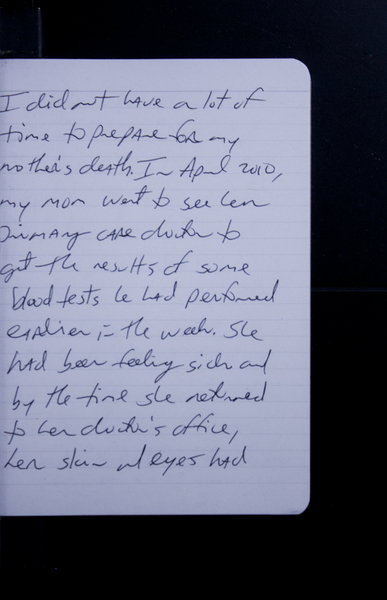 I did not have a lot of
time to prepare for my
mother's death. In April 2010,
my mom went to see her
primary care doctor to
get the results of some
blood tests he had performed
earlier in the week. She
had been feeling sick and
by the time she returned
to her doctor's office,
her skin and eyes had